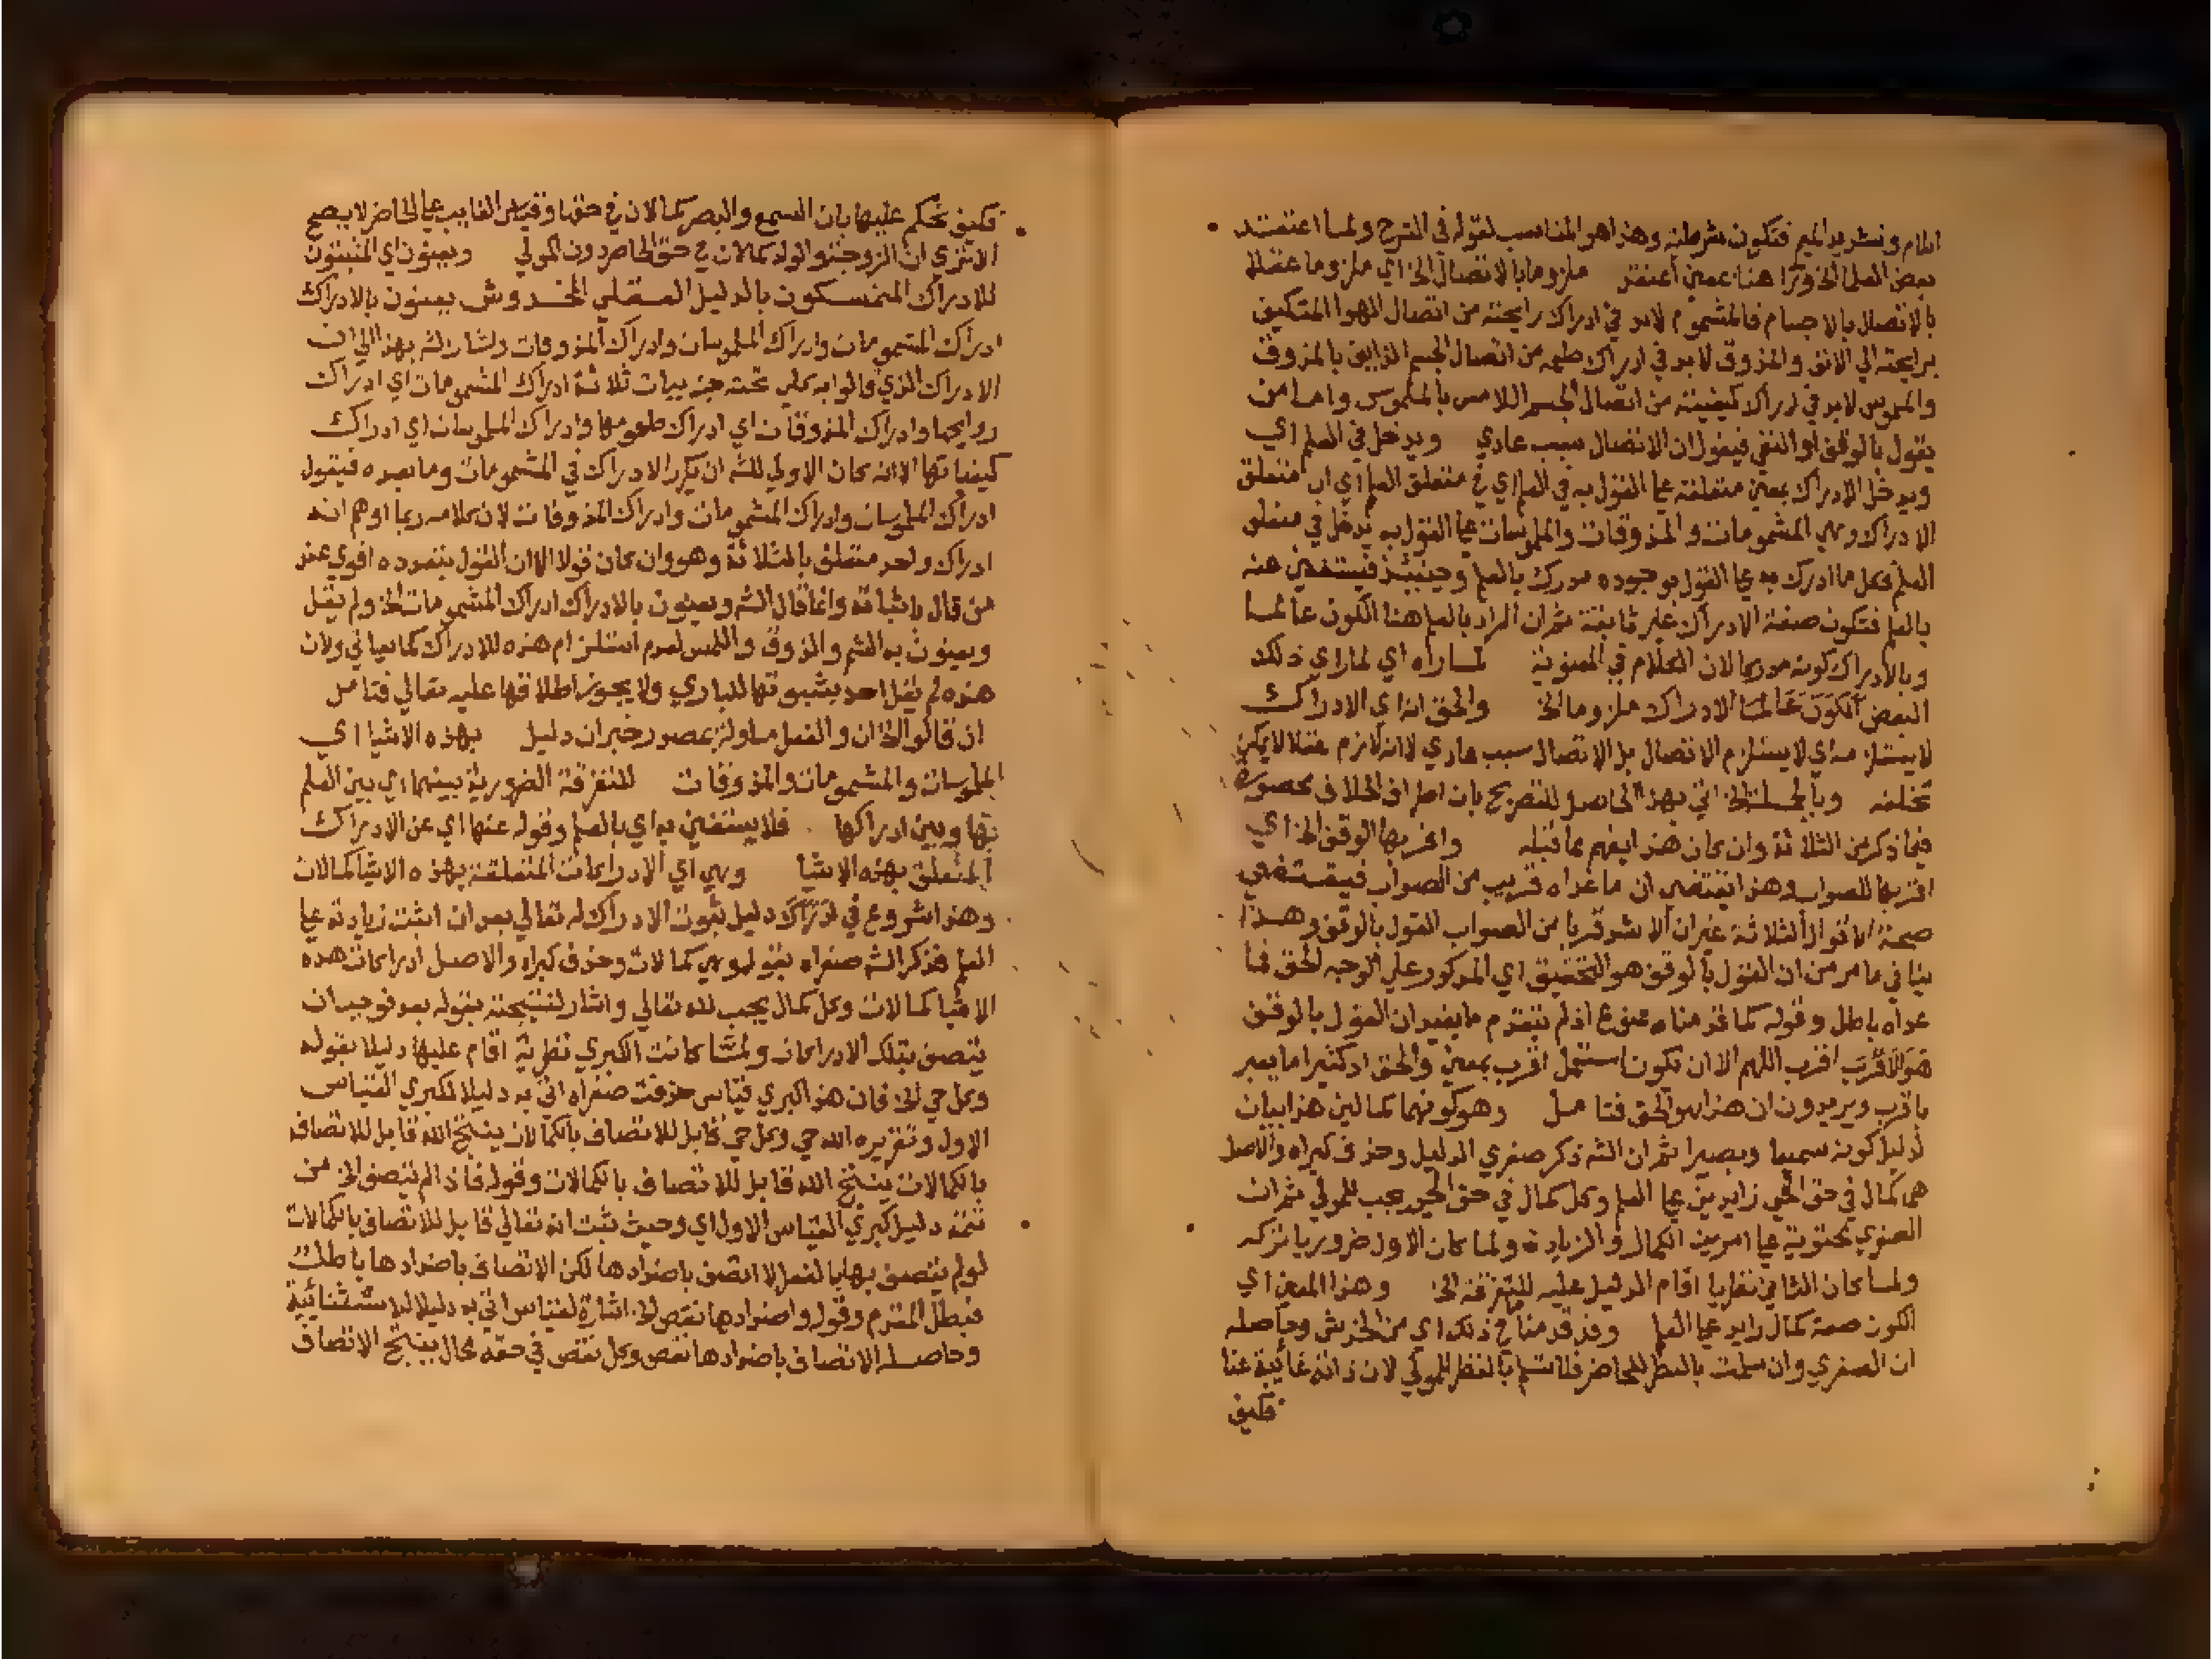 اللام وتشديد الميم فتكون شرطية وهذا هو المناسب لقوله في الشرح ولما اعتقد
بعض العلما الخ وترا هنا بمعنى اعتقد ملزوما بالاتصال الخ اي ملزوما عقلا
بالاتصال بالاجسام فالمشموم لابد في ادراك رايحته من اتصال الهوا المتكيف
برايحته الي الانف والمذوق لابد في ادراك طعمه من اتصال الجسم الذايق بالمذوق
والملموس لابد في ادراك كيفيته من اتصال الجسم اللامس بالملموس واما من
يقول بالوقف او النفي فيقول ان الاتصال سبب عادي ويدخل في العلم اي
ويدخل الادراك بمعنى متعلقه علي القول به في العلم اي في متعلق العلم اي ان متعلق
الادراك وهي المشمومات والمذوقات والملموسات علي القول به يدخل في متعلق
العلم فكل ما ادرك به علي القول بوجوده مدرك بالعلم وحينئذ فيستغني عنه
بالعلم فتكون صفة الادراك غير ثابتة ثم ان المراد بالعلم هنا الكون عالما
وبالادراك كونه مدركا لان الكلام في المعنوية لما راه اي لما راي ذلك
البعض الكون عالما الادراك ملزوما الخ والحق انه اي الادراك
لا يستلزمه اي لا يستلزم الاتصال بل الاتصال سبب عادي لا انه لازم عقلا لا يمكن
تخلفه وبالجملة الخ اتي بهذا الحاصل للتصريح بان اطراف الخلاف محصورة
فيما ذكر من الثلاثة وان كان هذا يفهم مما قبله واقربها الوقف الخ اي
اقربها للصواب وهذا يقتضي ان ما عداه قريب من الصواب فيقتضي
صحة الاقوال الثلاثة غير ان الاشد قربا من الصواب القول بالوقف وهذا
ينافي ما مر من ان القول بالوقف هو التحقيق اي المذكور علي الوجه الحق فما
عداه باطل وقوله كما قدمناه ممنوع اذ لم يتقدم ما يفيد ان القول بالوقف
هو الاقرب اقرب اللهم الا ان يكون استعمل اقرب بمعنى والحق اذ كثيرا ما يعبر
باقرب ويريدون ان هذا هو الحق فتامل وهو كونهما كمالين هذا بيان
لدليل كونه سميعا وبصيرا ثم ان الشه ذكر صغري الدليل وحذف كبراه والاصل
هما كمال في حق الحي زايدين علي العلم وكل كمال في حق الحي يجب للمولي ثم ان
الصغري محتوية علي امرين الكمال والزيادة ولما كان الاول ضروريا تركه
ولما كان الثاني نظريا اقام الدليل عليه للتفرقة الخ وهذا المعنى اي
الكون صفة كمال زايد علي العلم وقد قدمنا في ذلك اي من الخدش وحاصله
ان الصغري وان سلمت بالنظر للحاضر فلا تسلم بالنظر للمولي لان ذاته غائبة عنا
فكيف
فكيف نحكم عليها بان السمع والبصر كمالان في حقها وقياس الغايب علي الحاضر لا يصح
الا تري ان الزوجة والولد كمالان في حق الحاضر دون المولي ويعنون اي المثبتون
للادراك المتمسكون بالدليل العقلي المخدوش يعنون بالادراك
ادراك المشمومات وادراك الملموسات وادراك المذوقات واشار الشه بهذا الي ان
الادراك الذي قالوا به كلي تحته جزييات ثلاثة ادراك المشمومات اي ادراك
روايحها وادراك المذوقات اي ادراك طعومها وادراك الملموسات اي ادراك
كيفياتها الا انه كان الاولي للشه ان يكرر الادراك في المشمومات وما بعده فيقول
ادراك الملموسات وادراك المشمومات وادراك المذوقات لان كلامه ربما اوهم انه
ادراك واحد متعلق بالثلاثة وهو وان كان قولا الا ان القول بتعدده اقوي عند
من قال باثباته وانما قال الشه ويعنون بالادراك ادراك المشمومات الخ ولم يقل
ويعنون به الشم والذوق واللمس لعدم استلزام هذه للادراك كما سياتي ولان
هذه لم يقل احد بثبوتها للباري ولا يجوز اطلاقها عليه تعالي فتامل
ان قالوا الخ ان والفعل ماولة بمصدر خبر ان دليل بهذه الاشيا اي
الملموسات والمشمومات والمذوقات للتفرقة الضرورية بينهما اي بين العلم
بها وبين ادراكها فلا يستغني به اي بالعلم وقوله عنها اي عن الادراك
المتعلق بهذه الاشيا وهي اي الادراكات المتعلقة بهذه الاشيا كمالات
وهذا شروع في دليل ثبوت الادراك له تعالي بعد ان اثبت زيادته علي
العلم فذكر الشه صغراه بقوله وهي كمالات وحذف كبراه والاصل ادراكات هذه
الاشيا كمالات وكل كمال يجب لله تعالي واشار لنتيجته بقوله بعد فوجب ان
يتصف بتلك الادراكات ولما كانت الكبري نظرية اقام عليها دليلا بقوله
وكل حي الخ فان هذا كبري قياس حذفت صغراه اتي به دليلا لكبري القياس
الاول وتقريره الله حي وكل حي قابل للاتصاف بالكمالات ينتج الله قابل للاتصاف
بالكمالات ينتج الله قابل للاتصاف بالكمالات وقوله فاذا لم يتصف الخ من
تتمة دليل كبري القياس الاول اي وحيث ثبت انه تعالي قابل للاتصاف بالكمالات
لو لم يتصف بها بالفعل لاتصف باضدادها لكن الاتصاف باضدادها باطل
فبطل المقدم وقوله واضدادها نقص الخ اشارة لقياس اتي به دليلا للاستثنائية
وحاصله الاتصاف باضدادها نقص وكل نقص في حقه محال ينتج الاتصاف